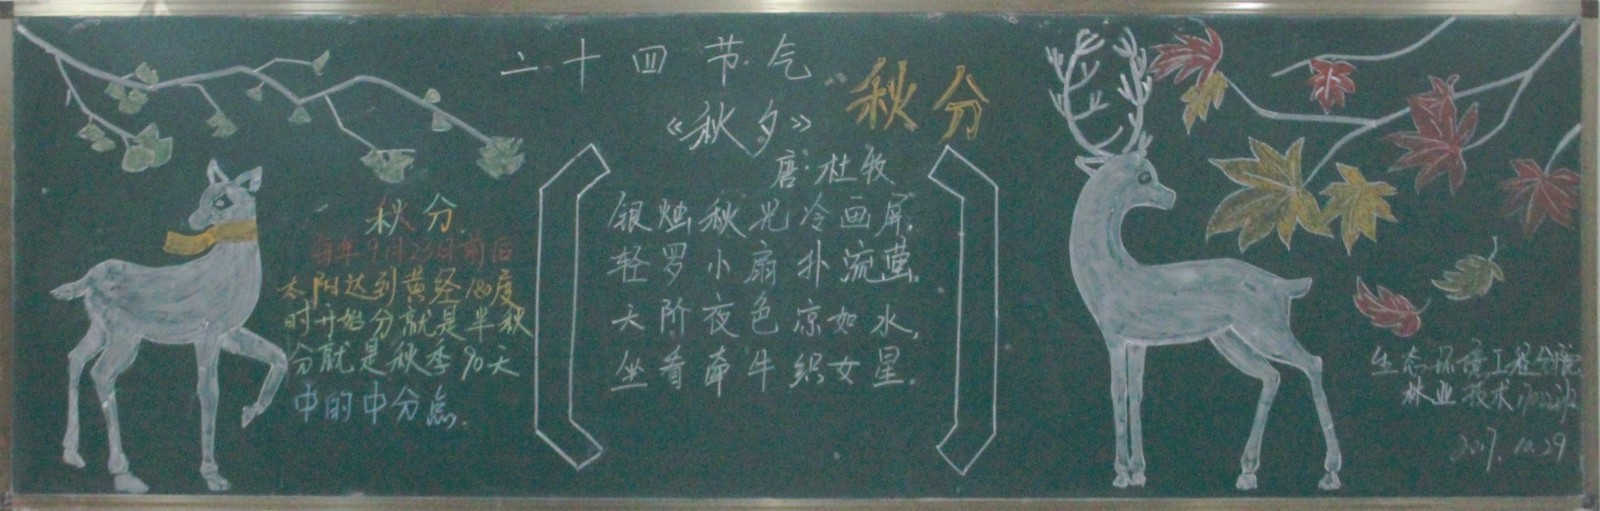 二十四节气
秋分
《秋夕》
唐:杜牧
银烛秋光冷画屏,
轻罗小扇扑流萤.
天阶夜色凉如水,
坐看牵牛织女星.
秋分
每年9月23日前后
太阳达到黄经180度
时开始分就是半秋
分就是秋季90天
中的中分点.
生态环境工程分院
林业技术1702班
2017.10.29